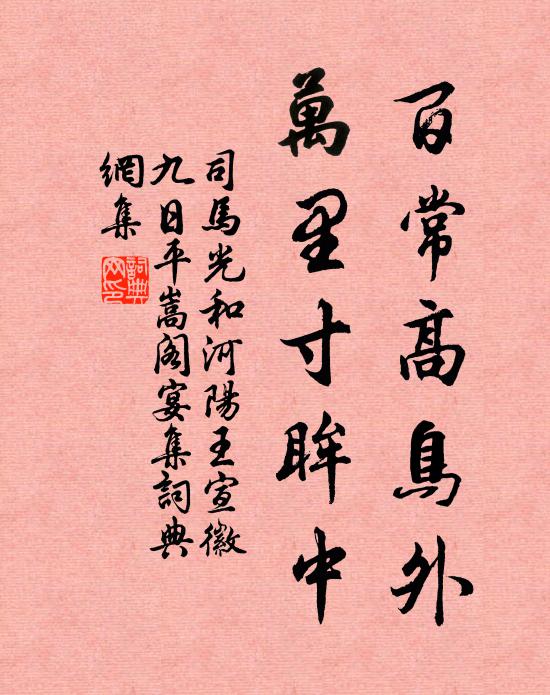 百常高鳥外
萬里寸眸中
司馬光和河陽王宣徽
九日平嵩閣宴集詞典
網集
詞典網印